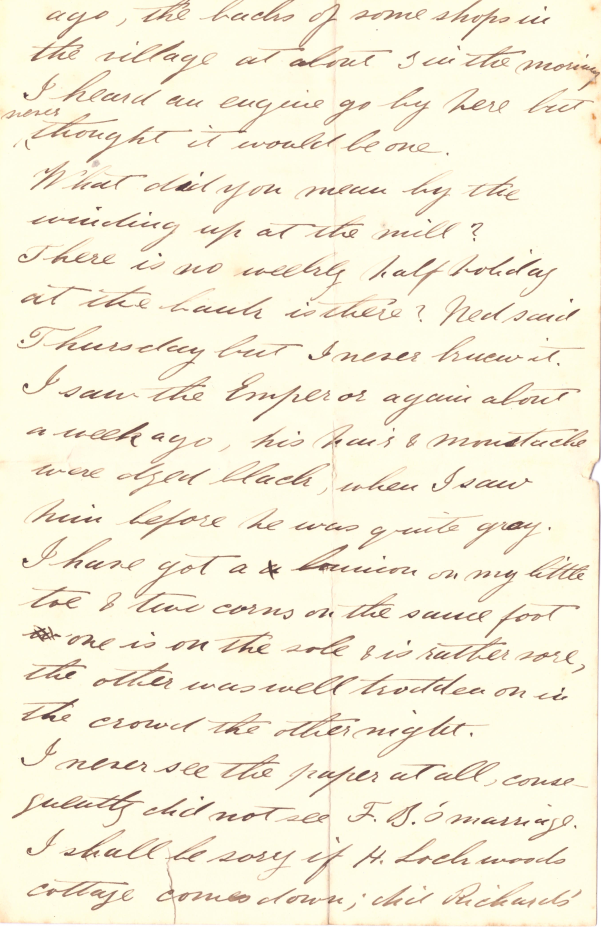 ago, the backs of some shops in
the village at about 3 in the morning
I heard an engine go by here but
never
thought it would be one.
What did you mean by the
winding up at the mill?
There is no weekly half holiday
at the bank is there? Ned said
Thursday but I never knew it.
I saw the Emperor again about
a week ago, his hair & moustache
were dyed black, when I saw
him before he was quite gray.
I have got a bunion on my little
toe & two corns on the same foot
one is on the sole & is rather sore,
the other was well trodden on in
the crowd the other night.
I never see the paper at all, conse-
quently did not see F. B.'s marriage.
I shall be sory if H. Lockwoods
cottage comes down; did Richard's